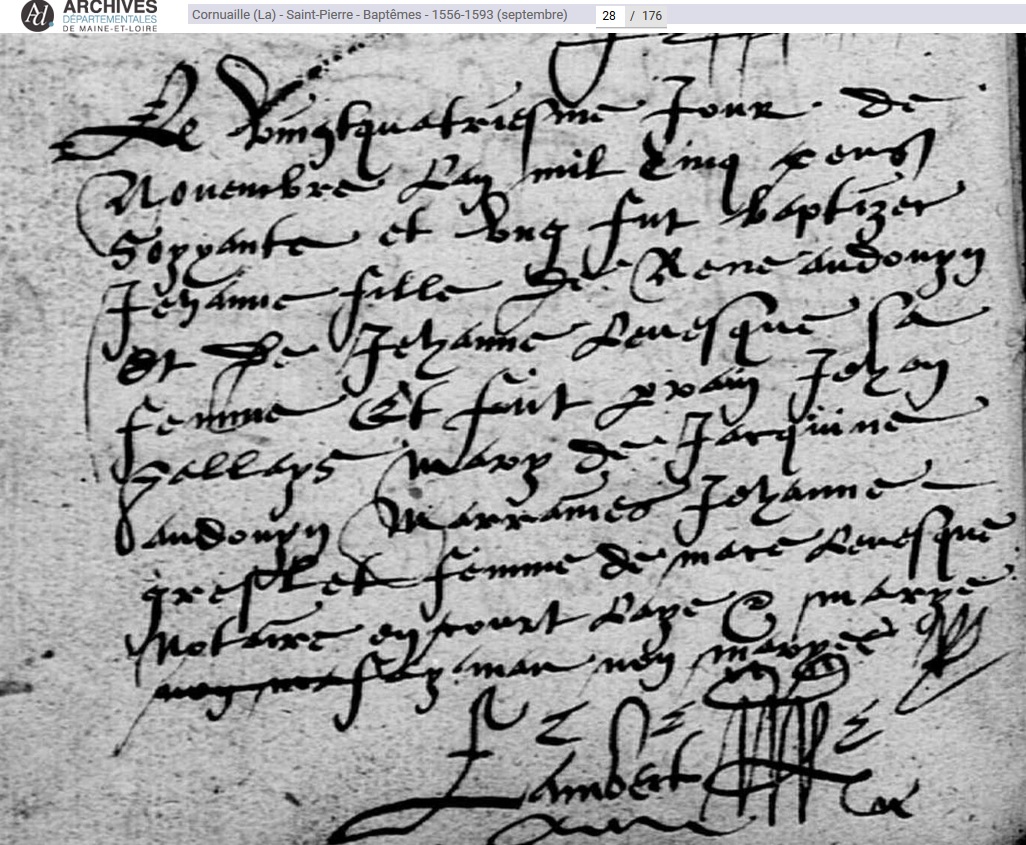 ARCHIVES
DÉPARTEMENTALES
DE MAINE-ET-LOIRE
Cornuaille (La) - Saint-Pierre - Baptêmes - 1556-1593 (septembre)
28 / 176
Le Vingtquatriesme Jour de
Novembre Lan mil Cinq cens
Soyxante et Ung fut baptizee
Jehanne fille de Rene audouyn
Et de Jehanne Levesque sa
femme Et fut parain Jehan
mary de Jacquine
audouyn Marraines Jehanne
femme de mace Levesque
Notaire en court Laye & marye
non maryee
Lambert